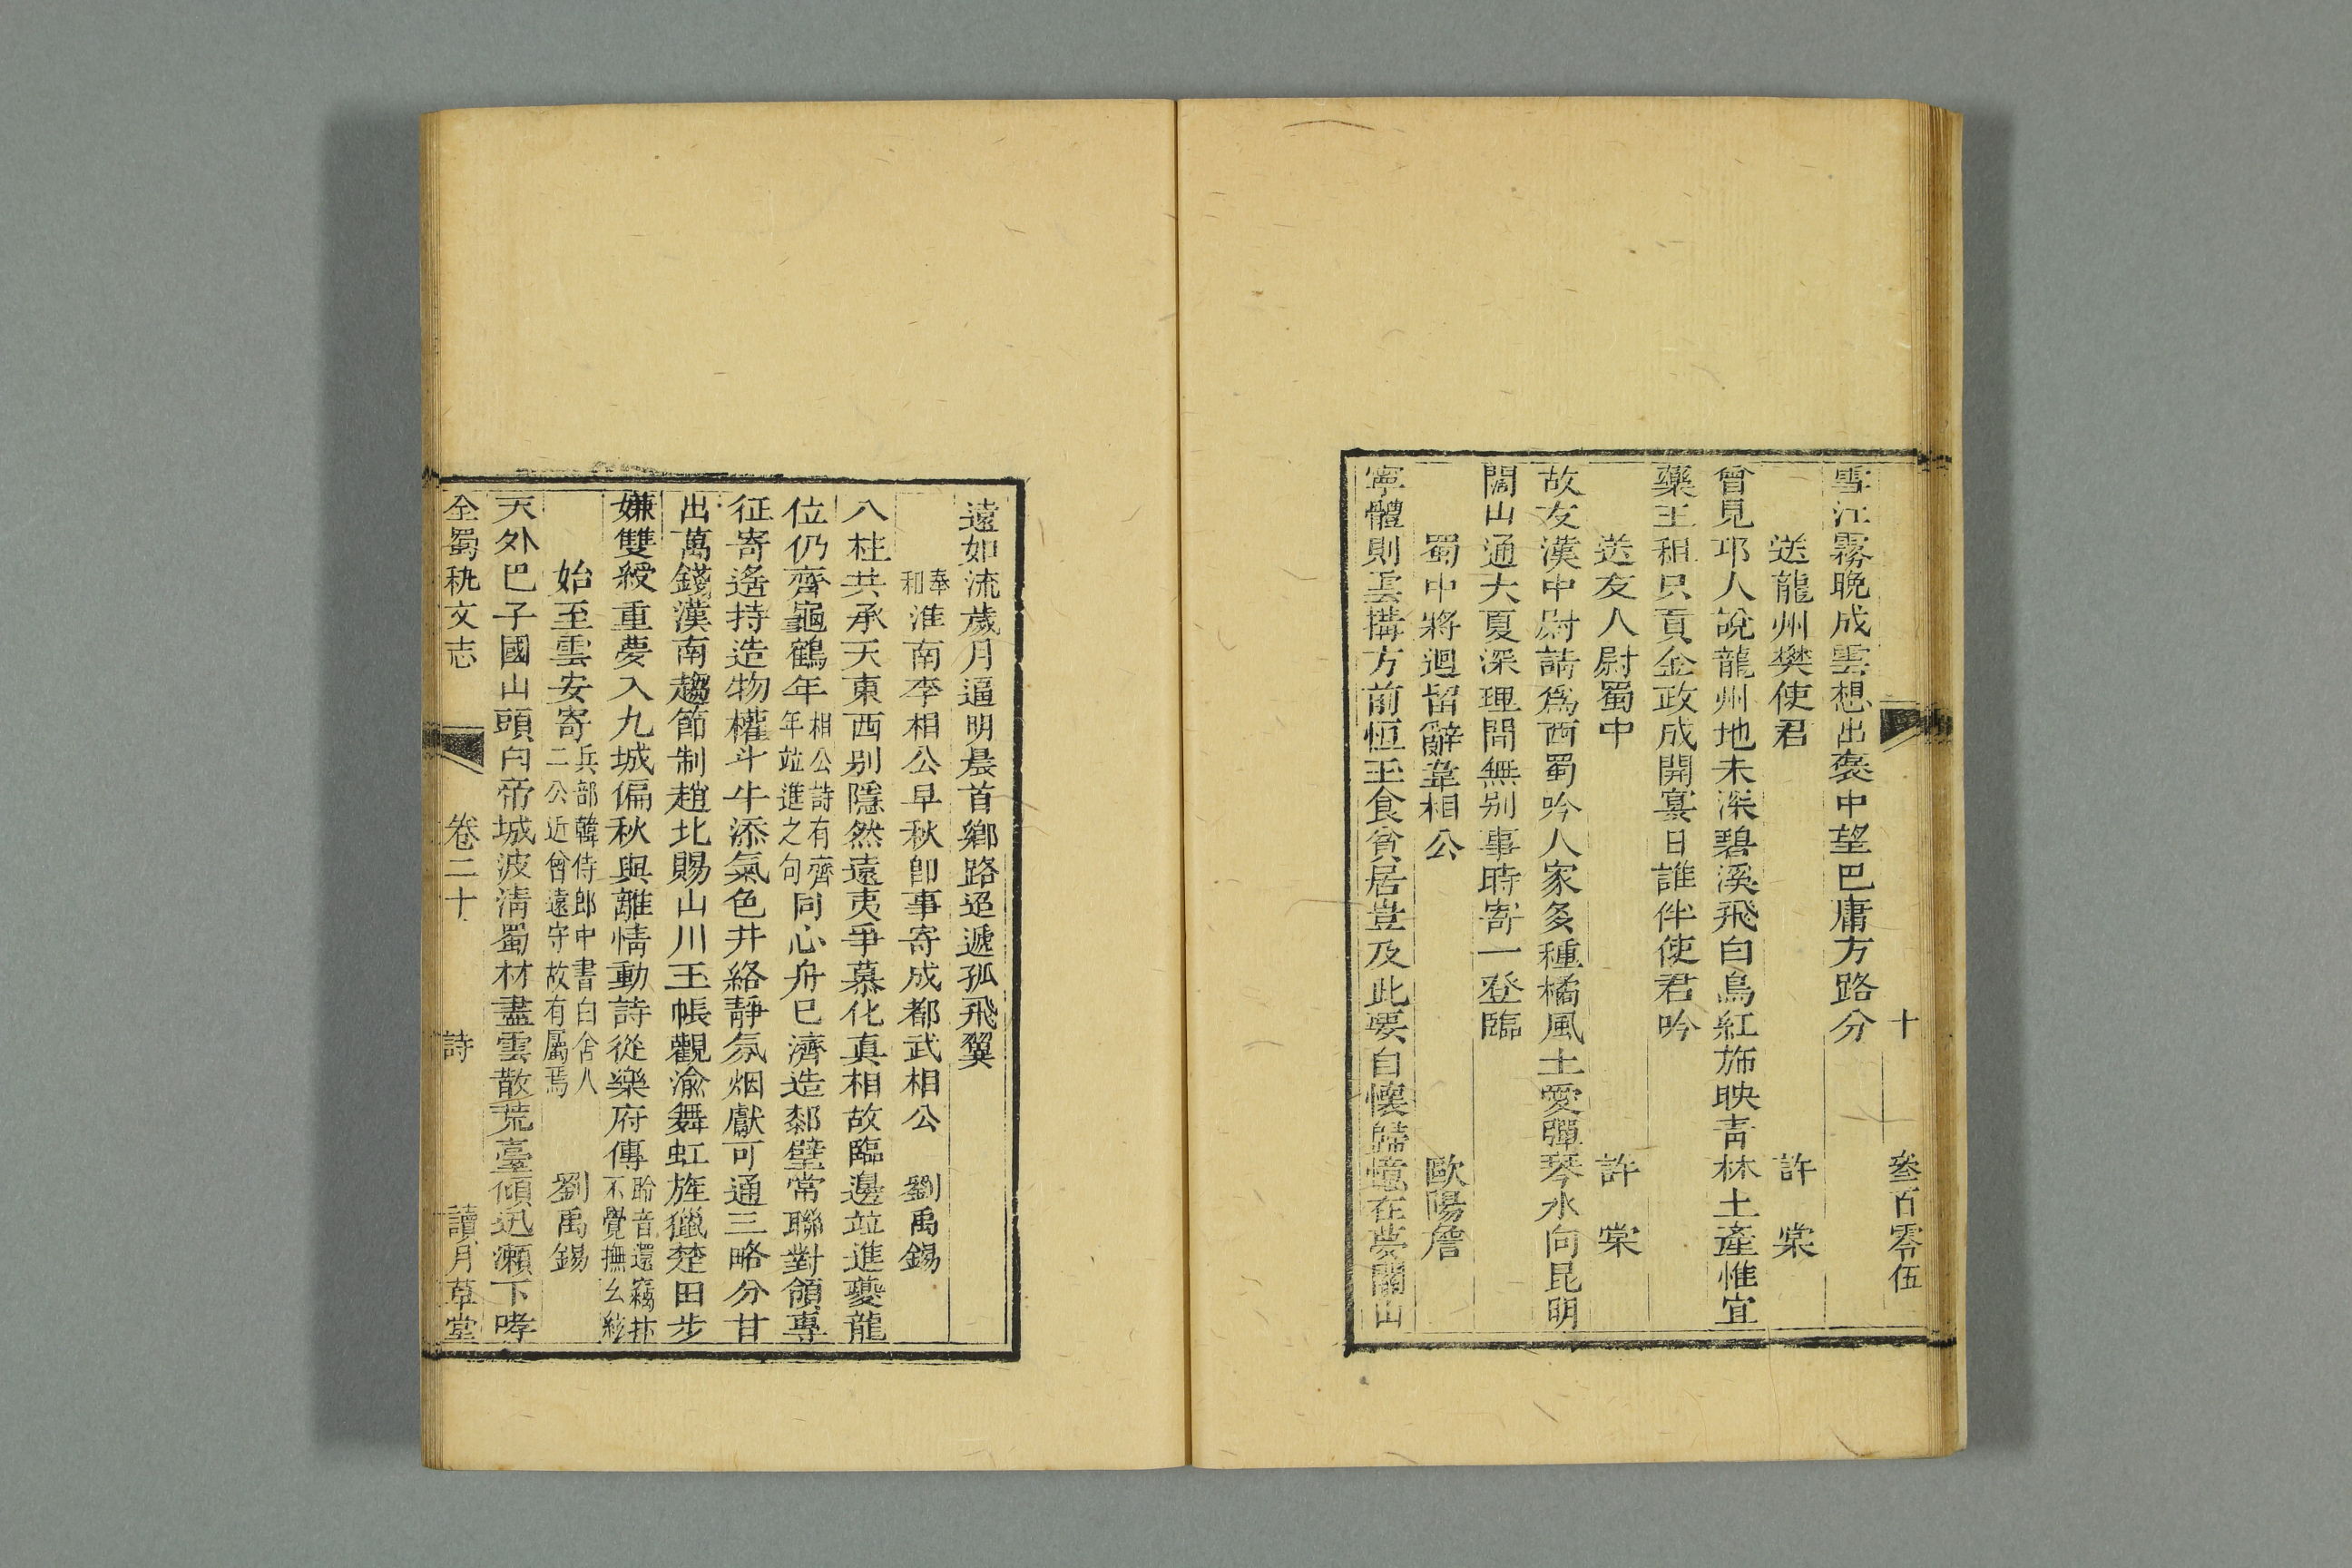 十　叁百零伍
雪江霧晚成雲想出褒中望巴庸方路分
送龍州樊使君　許棠
曾見邛人說龍州地未深碧溪飛白鳥紅斾映青林土產惟宜
藥王租只貢金政成開宴日誰伴使君吟
送友人尉蜀中　許棠
故友漢中尉請爲西蜀吟人家多種橘風土愛彈琴水向昆明
闊山通大夏深理閒無別事時寄一登臨
蜀中將迴留辭韋相公　歐陽詹
寧體則雲搆方前恒玉食貧居豈及此要自懷歸憶在夢關山
遠如流歲月逼明晨首鄉路迢遞孤飛翼
奉和淮南李相公早秋卽事寄成都武相公　劉禹錫
八柱共承天東西別隱然遠夷爭慕化真相故臨邊竝進夔龍
位仍齊龜鶴年相公詩有齊年竝進之句同心舟已濟造鄰璧常聯對領專
征寄遙持造物權斗牛添氣色井絡靜氛烟獻可通三略分甘
出萬錢漢南趨節制趙北賜山川玉帳觀渝舞虹旌獵楚田步
嫌雙綬重夢入九城偏秋與離情動詩從樂府傳聆音還竊抃不覺撫幺絃
始至雲安寄兵部韓侍郎中書白舍人二公近曾遠守故有屬焉　劉禹錫
天外巴子國山頭白帝城波清蜀材盡雲散荒臺傾迅瀨下哮
全蜀秇文志　卷二十　詩　讀月草堂